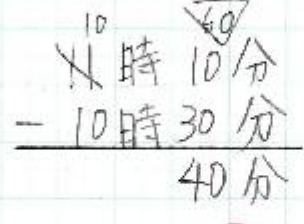 10 60
11時10分
- 10時30分
40分